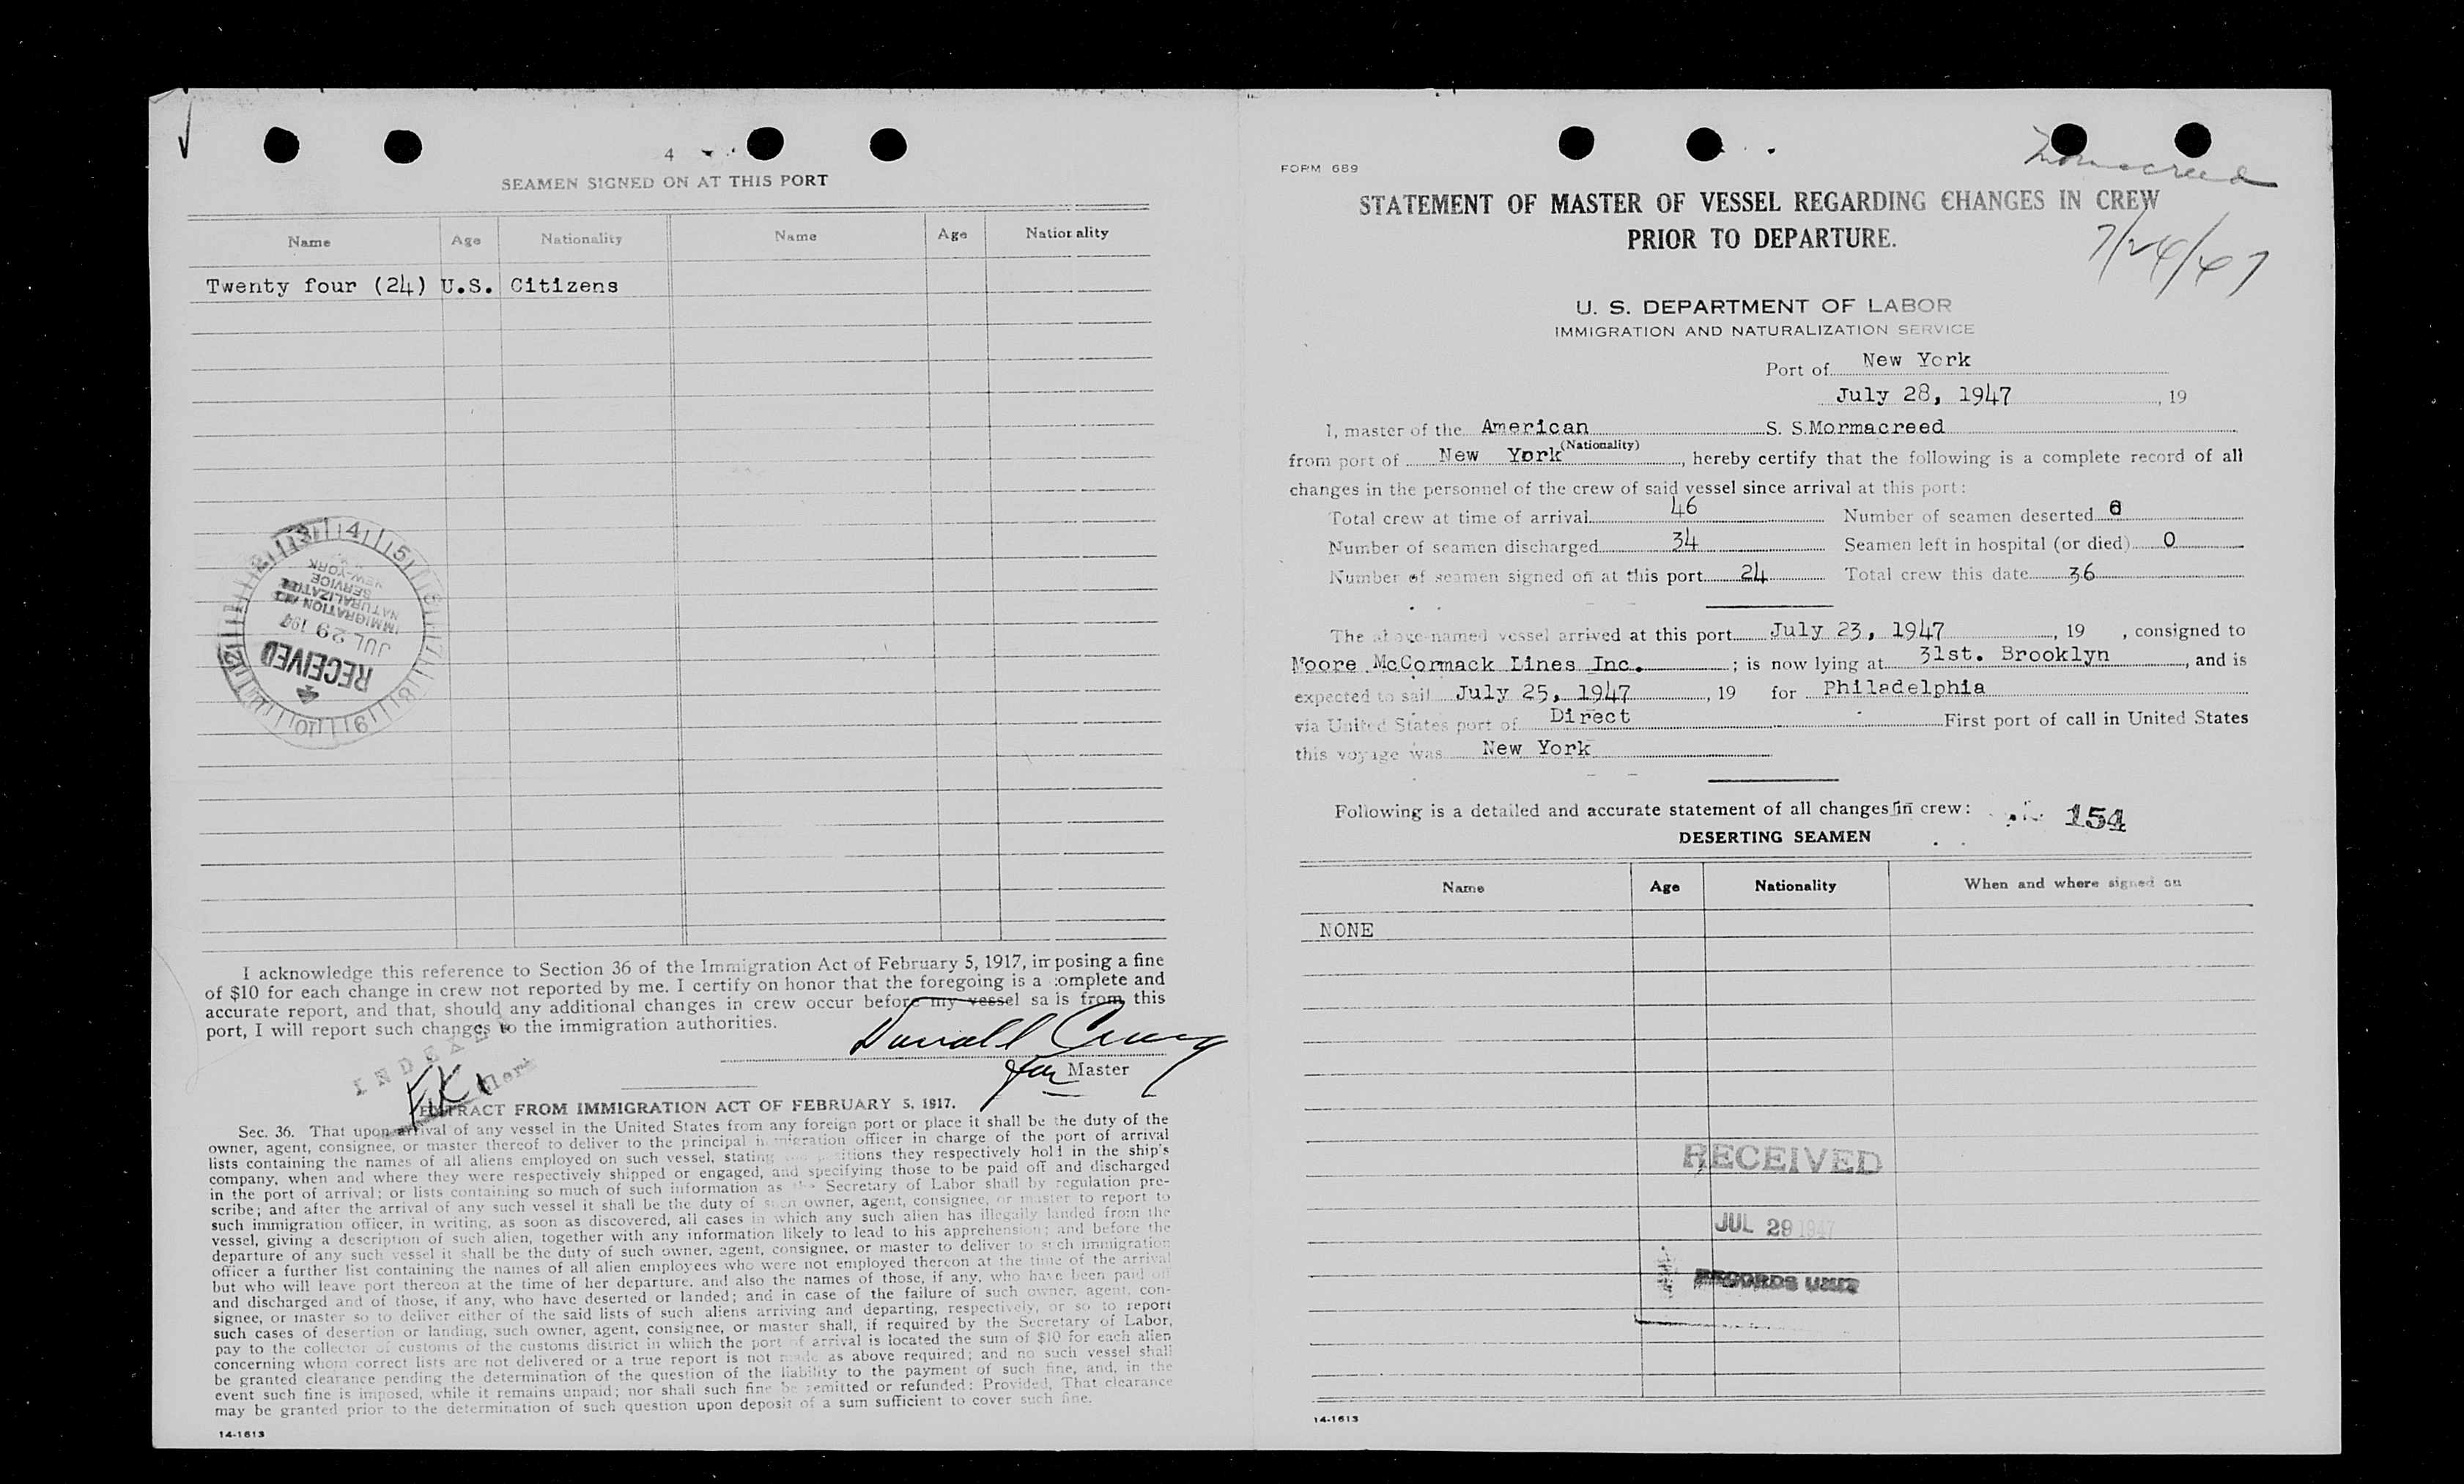 4
SEAMEN SIGNED ON AT THIS PORT
Name Age Nationality Name Age Nationality
Twenty four (24) U.S. Citizens
RECEIVED
JUL 29 194
IMMIGRATION AND
NATURALIZATION
SERVICE
NEW-YORK
I acknowledge this reference to Section 36 of the Immigration Act of February 5, 1917, imposing a fine
of $10 for each change in crew not reported by me. I certify on honor that the foregoing is a complete and
accurate report, and that, should any additional changes in crew occur before my vessel sails from this
port, I will report such changes to the immigration authorities.
for Master
INDEXED
EXTRACT FROM IMMIGRATION ACT OF FEBRUARY 5, 1917.
Sec. 36. That upon arrival of any vessel in the United States from any foreign port or place it shall be the duty of the
owner, agent, consignee, or master thereof to deliver to the principal immigration officer in charge of the port of arrival
lists containing the names of all aliens employed on such vessel, stating the positions they respectively hold in the ship's
company, when and where they were respectively shipped or engaged, and specifying those to be paid off and discharged
in the port of arrival; or lists containing so much of such information as the Secretary of Labor shall by regulation pre-
scribe; and after the arrival of any such vessel it shall be the duty of such owner, agent, consignee, or master to report to
such immigration officer, in writing, as soon as discovered, all cases in which any such alien has illegally landed from the
vessel, giving a description of such alien, together with any information likely to lead to his apprehension; and before the
departure of any such vessel it shall be the duty of such owner, agent, consignee, or master to deliver to such immigration
officer a further list containing the names of all alien employees who were not employed thereon at the time of the arrival
but who will leave port thereon at the time of her departure, and also the names of those, if any, who have been paid off
and discharged and of those, if any, who have deserted or landed; and in case of the failure of such owner, agent, con-
signee, or master so to deliver either of the said lists of such aliens arriving and departing, respectively, or so to report
such cases of desertion or landing, such owner, agent, consignee, or master shall, if required by the Secretary of Labor,
pay to the collector of customs of the customs district in which the port of arrival is located the sum of $10 for each alien
concerning whom correct lists are not delivered or a true report is not made as above required; and no such vessel shall
be granted clearance pending the determination of the question of the liability to the payment of such fine, and, in the
event such fine is imposed, while it remains unpaid; nor shall such fine be remitted or refunded: Provided, That clearance
may be granted prior to the determination of such question upon deposit of a sum sufficient to cover such fine.
14-1613
Mormacreed
FORM 689
STATEMENT OF MASTER OF VESSEL REGARDING CHANGES IN CREW
PRIOR TO DEPARTURE.
7/24/47
U. S. DEPARTMENT OF LABOR
IMMIGRATION AND NATURALIZATION SERVICE
Port of New York
July 28, 1947, 19
I, master of the American S. S. Mormacreed
(Nationality)
from port of New York, hereby certify that the following is a complete record of all
changes in the personnel of the crew of said vessel since arrival at this port:
Total crew at time of arrival 46 Number of seamen deserted 0
Number of seamen discharged 34 Seamen left in hospital (or died) 0
Number of seamen signed on at this port 24 Total crew this date 36
The above-named vessel arrived at this port July 23, 1947, 19 , consigned to
Moore McCormack Lines Inc. ; is now lying at 31st. Brooklyn, and is
expected to sail July 25, 1947, 19 for Philadelphia
via United States port of Direct First port of call in United States
this voyage was New York
Following is a detailed and accurate statement of all changes in crew: 154
DESERTING SEAMEN
Name Age Nationality When and where signed on
NONE
RECEIVED
JUL 29 1947
RECORDS UNIT
14-1613